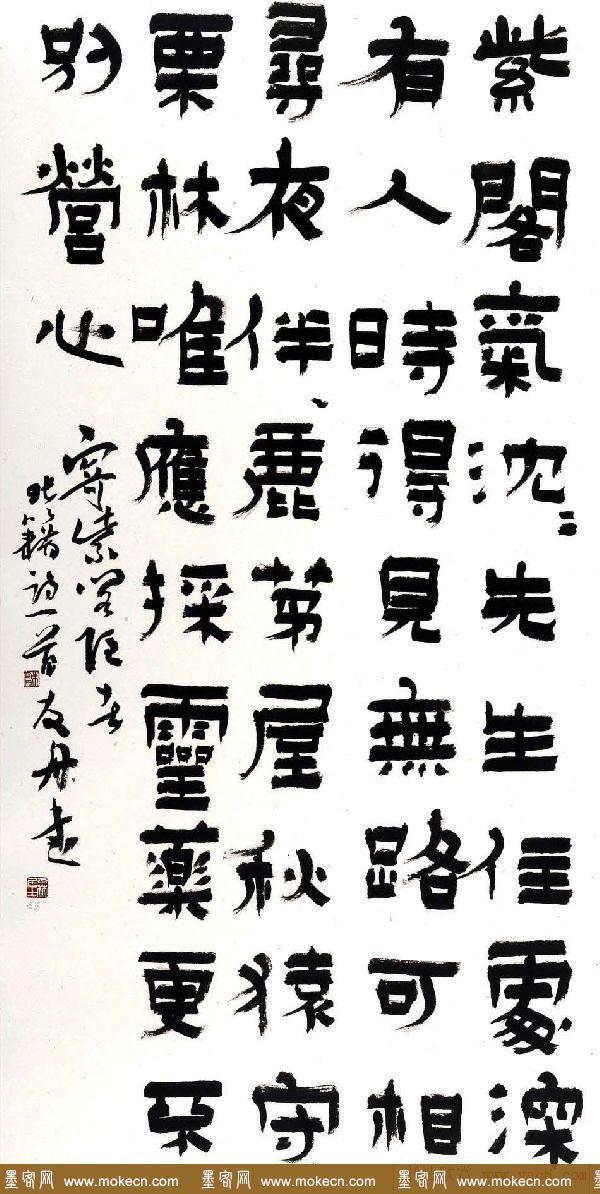 紫閣氣沈〻先生住處深
有人時得見無路可相
尋夜伴、鹿茅屋秋猿守
栗林唯應採靈藥更不
別營心
寄紫閣隱者
張籍詩一首友書
墨客网 www.mokecn.com 墨客网 www.mokecn.com 墨客网 www.mokecn.com